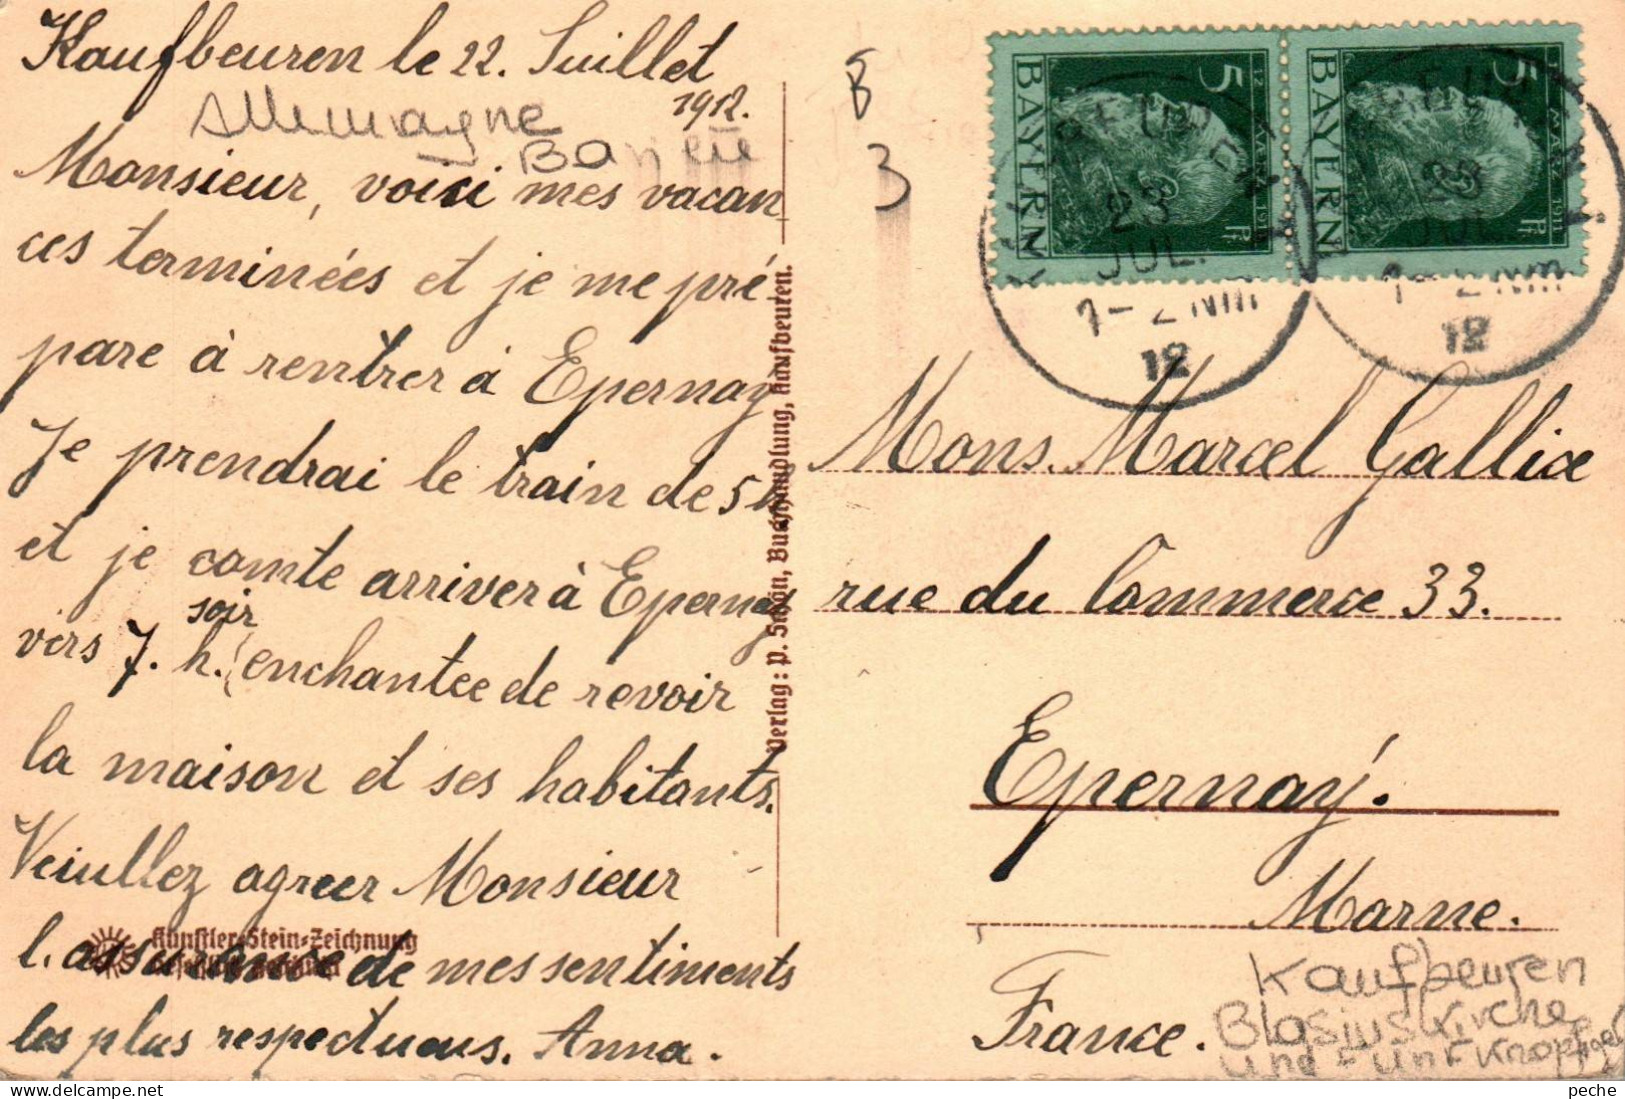 Kaufbeuren le 22. Juillet
1912.
Allemagne
Bavière
Monsieur, voici mes vacan
ces terminées et je me pré-
pare à rentrer à Epernay
Je prendrai le train de 5 h
et je comte arriver à Epernay
vers 7. h. soir enchantee de revoir
la maison et ses habitants.
Veiullez agreer Monsieur
l.assurance de mes sentiments
les plus respectueus. Anna.
Künstler-Stein-Zeichnung
Verlag: P. Schön, Buchhandlung, Kaufbeuren.
B
3
BAYERN
5
Pf.
BAYERN
5
Pf.
KAUFBEUREN 1.
23
JUL.
1-2 Nm
12
23
JUL.
1-2 Nm
12
Mons. Marcel Gallice
rue du Commerce 33.
Epernay.
Marne.
France.
Kaufbeuren
Blasius Kirche
und Fünfknopf
peche